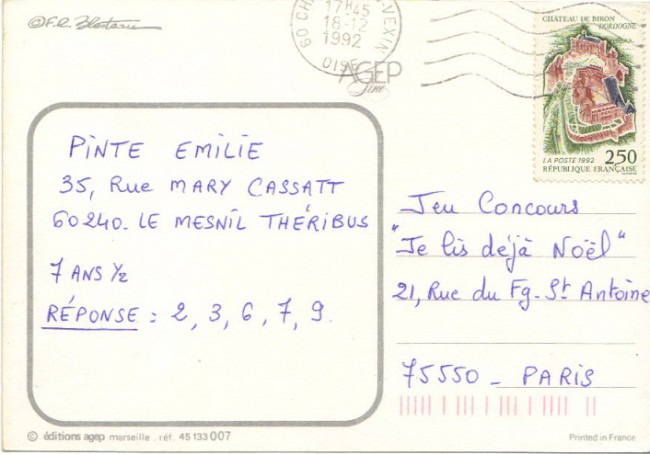 ©
17H45
18-12
1992
OISE
AGEP
CHÂTEAU DE BIRON
DORDOGNE
LA POSTE 1992
2,50
RÉPUBLIQUE FRANÇAISE
PINTE EMILIE
35, Rue MARY CASSATT
60240. LE MESNIL THÉRIBUS
7 ANS ½
RÉPONSE : 2, 3, 6, 7, 9.
Jeu Concours
"Je lis déjà Noël"
21, Rue du Fg-St Antoine
75550 - PARIS
© éditions agep marseille . réf. 45 133 007
Printed in France